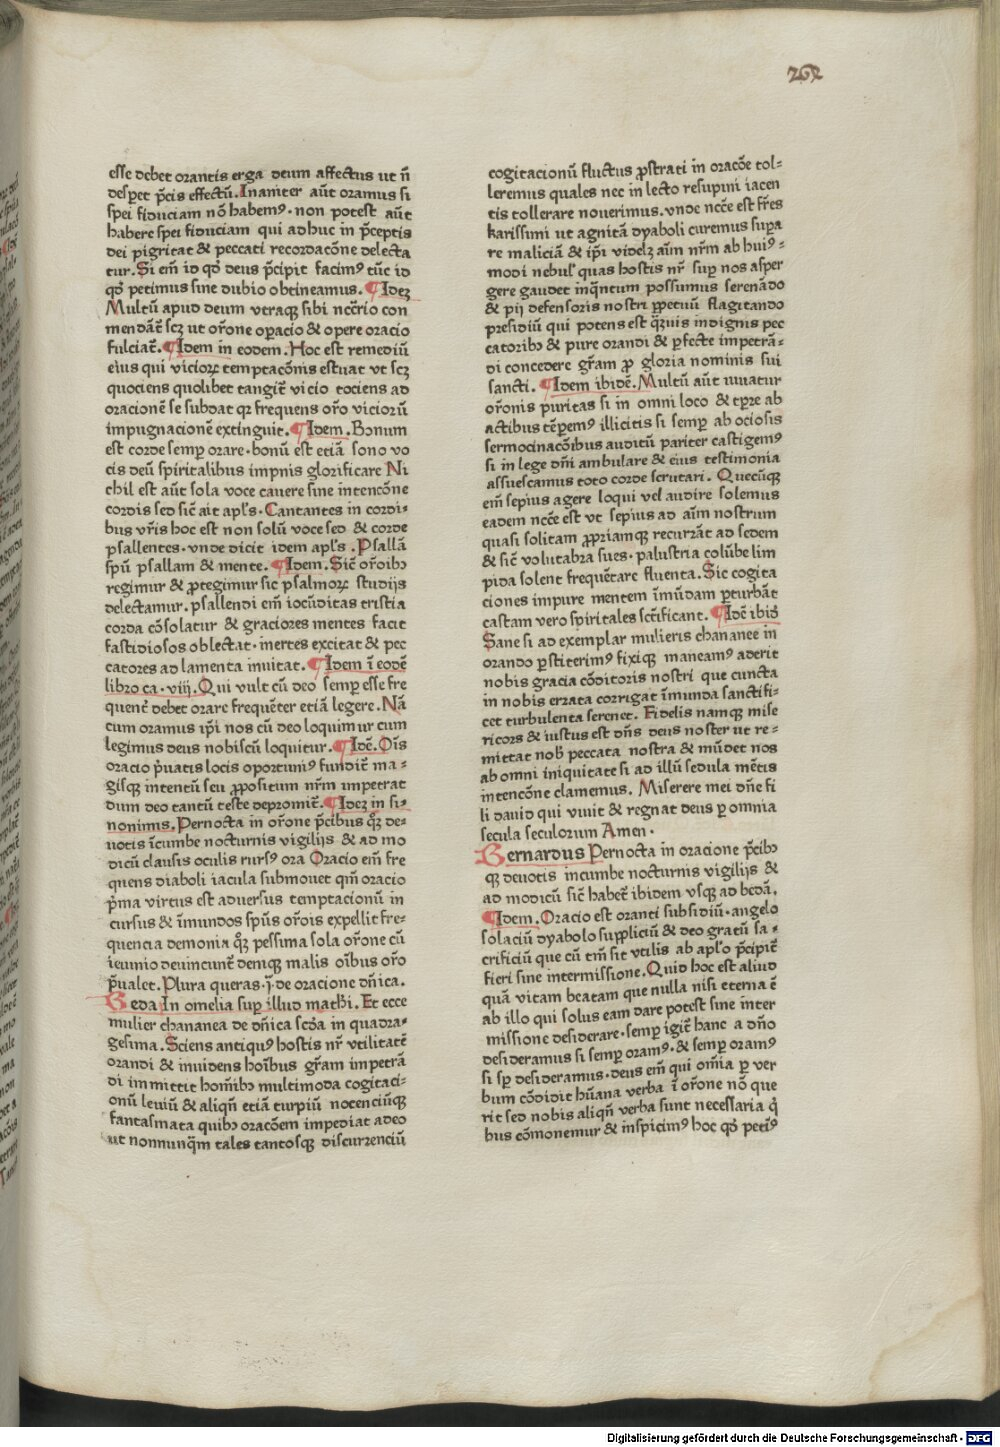 262
esse debet orantis erga deum affectus ut n̄
desp̲et p̄cis effectū. Inaniter aūt oramus si
spei fiduciam nō habemꝰ · non potest aūt
habere spei fiduciam qui adhuc in p̄ceptis
dei pigritat & peccati recordacōne delecta
tur. Si em̄ id qď deus p̄cipit facimꝰ tūc id
qď petimus sine dubio obtineamus. ¶ Idez
Multū apud deum vtraqꝫ sibi nccr̄io con
mendāt̄ scꝫ ut or̄one op̲acio & opere oracio
fulciat̄. ¶ Idem in eodem. Hoc est remediū
eius qui vicioꝝ temptacōnis estuat vt scꝫ
quociens quolibet tangit̄ vicio tociens ad
oracionē se subdat qꝛ frequens or̄o vicioꝝū
impugnacionē extinguit. ¶ Idem. Bonum
est corde semp̲ orare · bonū est etiā sono vo
cis deū spiritalibus impnis glorificare Ni
chil est aūt sola voce canere sine intencōne
cordis sed sic̄ ait apl̄s. Cantantes in cordi-
bus vr̄is hoc est non solū voce sed & corde
psallentes. vnde dicit idem apl̄s. Psallā
spū psallam & mente. ¶ Idem. Sic̄ or̄oibꝫ
regimur & ꝓtegimur sic psalmoꝝ studijs
delectamur. psallendi em̄ iocūditas tristia
corda cōsolatur & graciores mentes facit
fastidiosos oblectat · inertes excitat & pec
catores ad lamenta inuitat. ¶ Idem ī eodē
libro ca · viij. Qui vult cū deo semp̲ esse fre
quent̄ debet orare frequēter etiā legere. Nā
cum oramus ip̄i nos cū deo loquimur cum
legimus deus nobiscū loquitur. ¶ Idē. Oīs
oracio p̄uatis locis oportuniꝰ fundit̄ ma-
gisqꝫ intentū seu ꝓpositum nr̄m impetrat
dum deo tantū teste depromit̄. ¶ Idez in si-
nonimis. Pernocta in or̄one p̄cibus qꝫ de-
uotis īcumbe nocturnis vigilijs & ad mo
dicū clausis oculis rursꝰ ora Oracio em̄ fre
quens diaboli iacula submouet qm̄ oracio
p̄ma virtus est aduersus temptacionū in
cursus & īmundos spūs or̄ois expellit fre-
quencia demonia qꝫ pessima sola or̄one cū
ieiunio deuincunt̄ deniqꝫ malis oībus or̄o
p̄ualet. Plura queras · j. de oracione dn̄ica.
Beda In omelia sup̲ illud math̄i. Et ecce
mulier chananea de dn̄ica scd̄a in quadra-
gesima. Sciens antiquꝰ hostis nr̄ vtilitatē
orandi & inuidens hoībus gr̄am impetrā
di immittit hom̄ibꝫ multimoda cogitaci-
onū leuiū & aliqn̄ etiā turpiū nocenciūqꝫ
fantasmata quibꝫ oracōem impediat adeo
ut nonnunqm̄ tales tantosqꝫ discurrenciū
cogitacionū fluctus ꝓstrati in oracōe tol-
leremus quales nec in lecto resupini iacen
tis tollerare nouerimus. vnde ncc̄e est fr̄es
karissimi ut agnitā dyaboli curemus sup̲a
re maliciā & ip̄i videlz aīm nr̄m ab huiꝰ-
modi nebul̄ quas hostis nr̄ sup̲ nos asper
gere gaudet inqn̄tum possumus serenādo
& pij defensoris nostri p̲petuū flagitando
presidiū qui potens est qꝫuis indignis pec
catoribꝫ & pure orandi & p̲fecte impetrā-
di concedere gr̄am ꝓ gloria nominis sui
sancti. ¶ Idem ibidē. Multū aūt iuuatur
or̄onis puritas si in omni loco & tp̲re ab
actibus tēp̲emꝰ illicitis si semp̲ ab ociosis
sermocinacōibus auditū pariter castigemꝰ
si in lege dn̄i ambulare & eius testimonia
assuescamus toto corde scrutari. Quecūqꝫ
em̄ sepius agere loqui vel audire solemus
eadem ncc̄e est vt sepius ad aīm nostrum
quasi solitam ꝓpriamqꝫ recurrāt ad sedem
& sic̄ volutabra sues · palustria colūbe lim
pida solent frequētare fluenta. Sic cogita
ciones impure mentem īmūdam p̲turbāt
castam vero spiritales sc̄tificant. ¶ Idē ibid̄
Sane si ad exemplar mulieris chananee in
orando p̲stiterimꝰ fixiqꝫ maneamꝰ aderit
nobis gracia cōditoris nostri que cuncta
in nobis errata corrigat īmunda sanctifi-
cet turbulenta serenet. Fidelis namqꝫ mise
ricors & iustus est dn̄s deus noster ut re-
mittat nob̄ peccata nostra & mūdet nos
ab omni iniquitate si ad illū sedula mētis
intencōne clamemus. Miserere mei dn̄e fi
li dauid qui viuit & regnat deus p̲ omnia
secula seculorum Amen ·
Bernardus Pernocta in oracione p̄cibꝫ
qꝫ deuotis incumbe nocturnis vigilijs &
ad modicū sic̄ habet̄ ibidem vsqꝫ ad bedā.
¶ Idem. Oracio est oranti subsidiū · angelo
solaciū dyabolo suppliciū & deo gratū sa-
crificiū que cū tm̄ sit vtilis ab apl̄o p̄cipit̄
fieri sine intermissione. Quid hoc est aliud
quā vitam beatam que nulla nisi eterna ē
ab illo qui solus eam dare potest sine inter
missione desiderare · semp̲ igit̄ hanc a dn̄o
desideramus si semp̲ oramꝰ · & semp̲ oramꝰ
si sp̲ desideramus · deus em̄ qui om̄ia p̲ ver
bum cōdidit hūana verba ī or̄one nō que
rit sed nobis aliqn̄ verba sunt necessaria q̄
bus cōmonemur & inspicimꝰ hoc qď petimꝰ
Digitalisierung gefördert durch die Deutsche Forschungsgemeinschaft - DFG